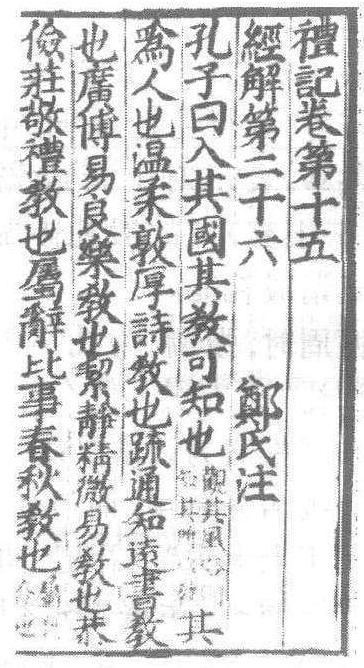 禮記卷第十五
經解第二十六　鄭氏注
孔子曰入其國其教可知也觀其風俗則知其所以教其
為人也温柔敦厚詩教也疏通知遠書教
也廣博易良樂教也絜靜精微易教也恭
儉莊敬禮教也屬辭比事春秋教也